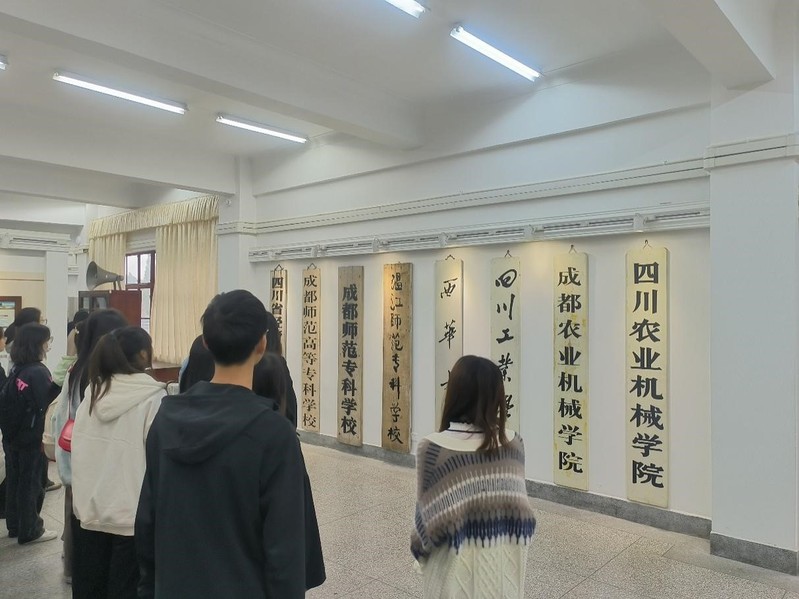 四川省经
成都师范高等专科学校
成都师范专科学校
温江师范专科学校
西华
四川工业学
成都农业机械学院
四川农业机械学院